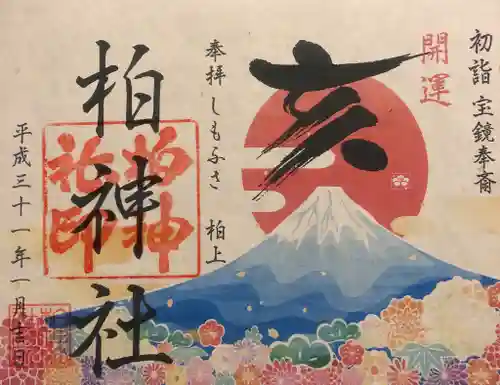 初詣 宝鏡奉斎
開運
亥
奉拝 しもふさ 柏上
柏神社
柏神社印
平成三十一年一月吉日